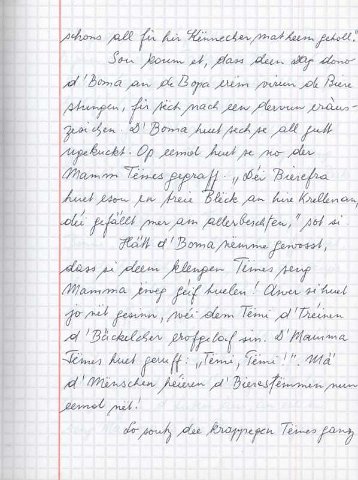 schons all fir hir Hënnecher mat heem geholl."
Sou koum et, dass deen Dag dono
d'Boma an de Bopa erëm virun de Biere
stungen, fir sich nach een dervun eraus-
zesichen. D'Boma huet sech se all gutt
ugekuckt. Op eemol huet se no der
Mamm Témes gegraff. „Déi Bierefra
huet esou en treie Bléck an hire Krellenan,
déi gefällt mer am allerbeschten," sot si.
Hätt d'Boma nemme gewosst,
dass si deem klengen Témes seng
Mamma eweg géif huelen! Awer si huet
jo nët gesinn, wéi dem Témi d'Tréinen
d'Bäckelcher erofgelaf sin. D'Mamma
Témes huet geruff: „Témi, Témi!". Mä
d'Mënschen héieren d'Bierestëmmen nun
eemol net!
So souz dee krappegen Témes ganz